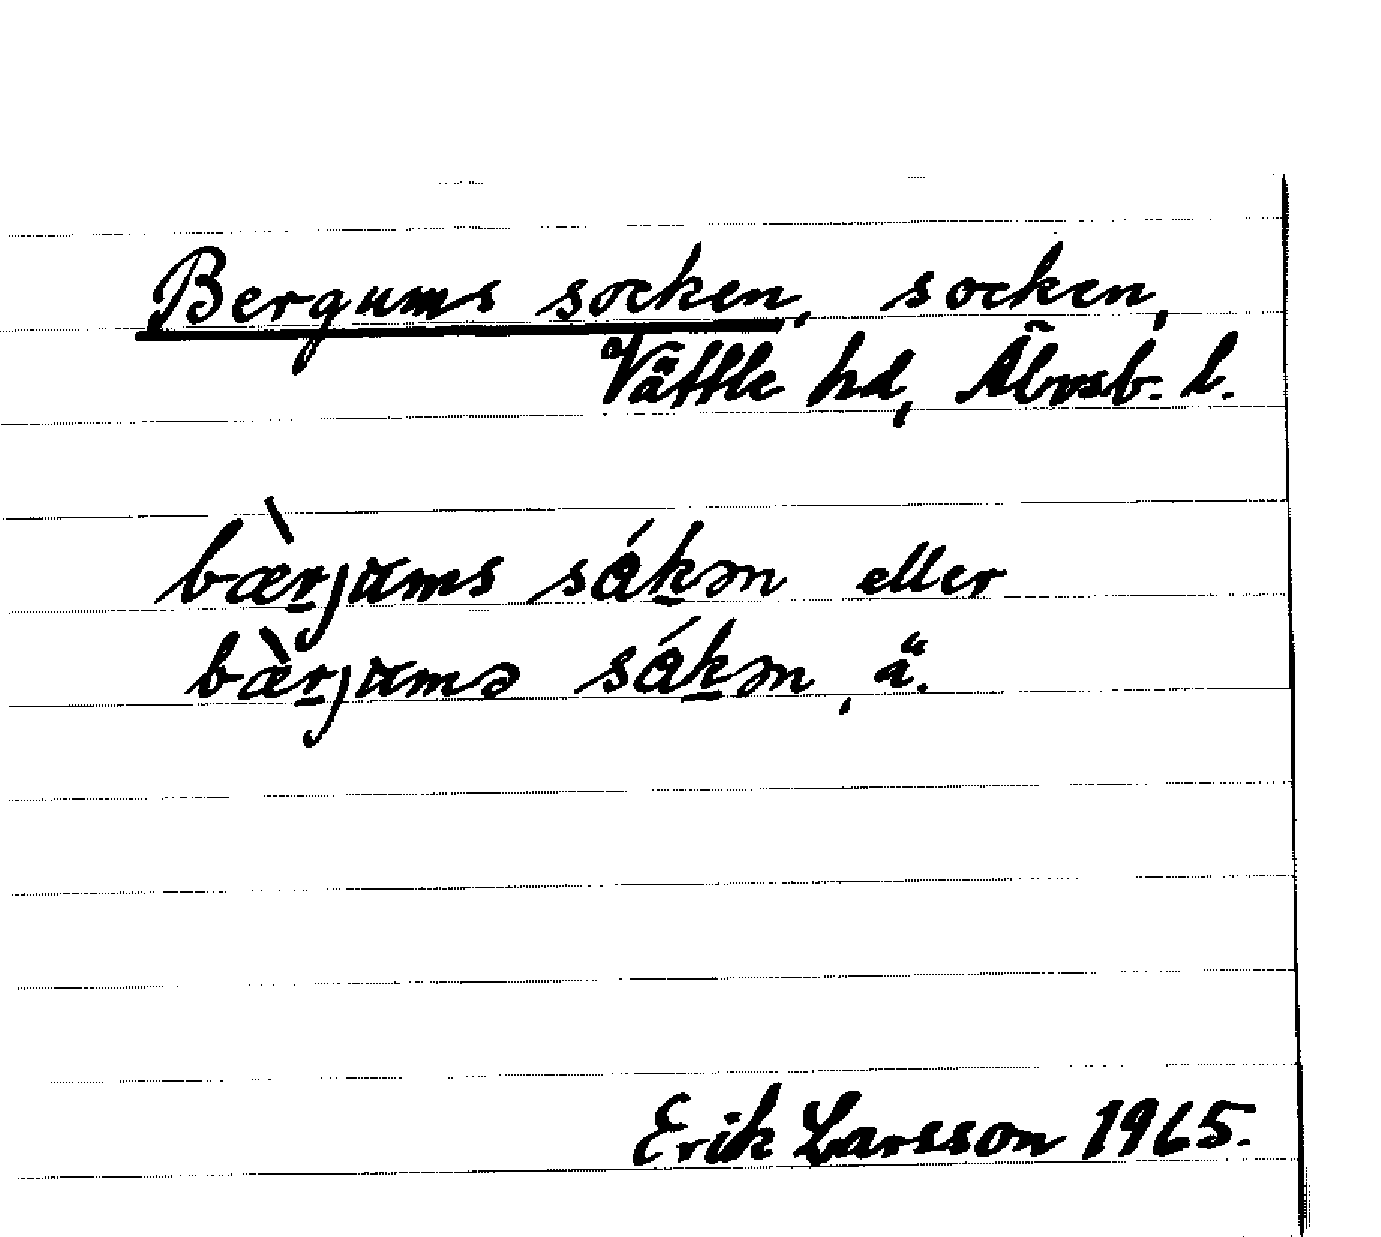 Bergums socken, socken,
Vättle hd, Älvsb. l.
bæ̀r̠jums sák̠ən eller
bæ̀r̠jumə sák̠ən, ä.
Erik Larsson 1965.